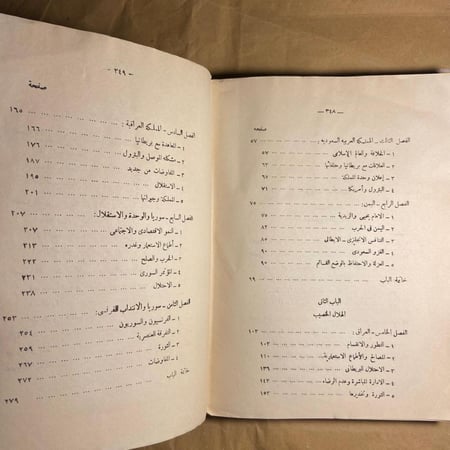 - ٣٤٨ -
صفحة
الفصل الثالث - المملكة العربية السعودية : ٥٧
١ - الخلافة والعالم الإسلامي ٥٧
٢ - العلاقات مع بريطانيا وحلفائها ٦٢
٣ - إعلان وحدة المملكة ٦٧
٤ - البترول وأمريكا ٧١
الفصل الرابع - اليمن : ٧٥
١ - الإمام يحيى والزيدية ٧٥
٢ - اليمن في الحرب ٨٠
٣ - التنافس الانجليزي - الايطالي ٨٥
٤ - الغزو السعودي ٩٠
٥ - العزلة والاحتفاظ بالوضع القائم ٩٥
خاتمة الباب ٩٩
الباب الثاني
الهلال الخصيب
الفصل الخامس - العراق : ١٠٣
١ - التطور والانقسام ١١٠
٢ - المصالح والأطماع الاستعمارية ١٢٥
٣ - الاحتلال البريطاني ١٣٩
٤ - الادارة المباشرة وعدم الرضاء ١٤٣
٥ - الثورة وتخديرها ١٥٣
- ٣٤٩ -
صفحة
الفصل السادس - المملكة العراقية : ١٦٥
١ - المعاهدة مع بريطانيا ١٦٦
٢ - مشكلة الموصل والبترول ١٧٦
٣ - المفاوضات من جديد ١٨٧
٤ - الاستقلال ١٩٥
٥ - المملكة وجيرانها ٢٠١
الفصل السابع - سوريا والوحدة والاستقلال : ٢٠٧
١ - النمو الاقتصادي والاجتماعي ٢٠٧
٢ - أطماع الاستعمار وغدره ٢١٣
٣ - الحرب والصلح ٢٢٢
٤ - المؤتمر السوري ٢٣١
٥ - الاحتلال ٢٣٨
الفصل الثامن - سوريا والانتداب الفرنسي : ٢٥٣
١ - الفرنسيون والسوريون ٢٥٤
٢ - التفرقة العنصرية ٢٦٠
٣ - الثورة ٢٦٧
٤ - المفاوضات ٢٧٢
خاتمة الباب ٢٧٩